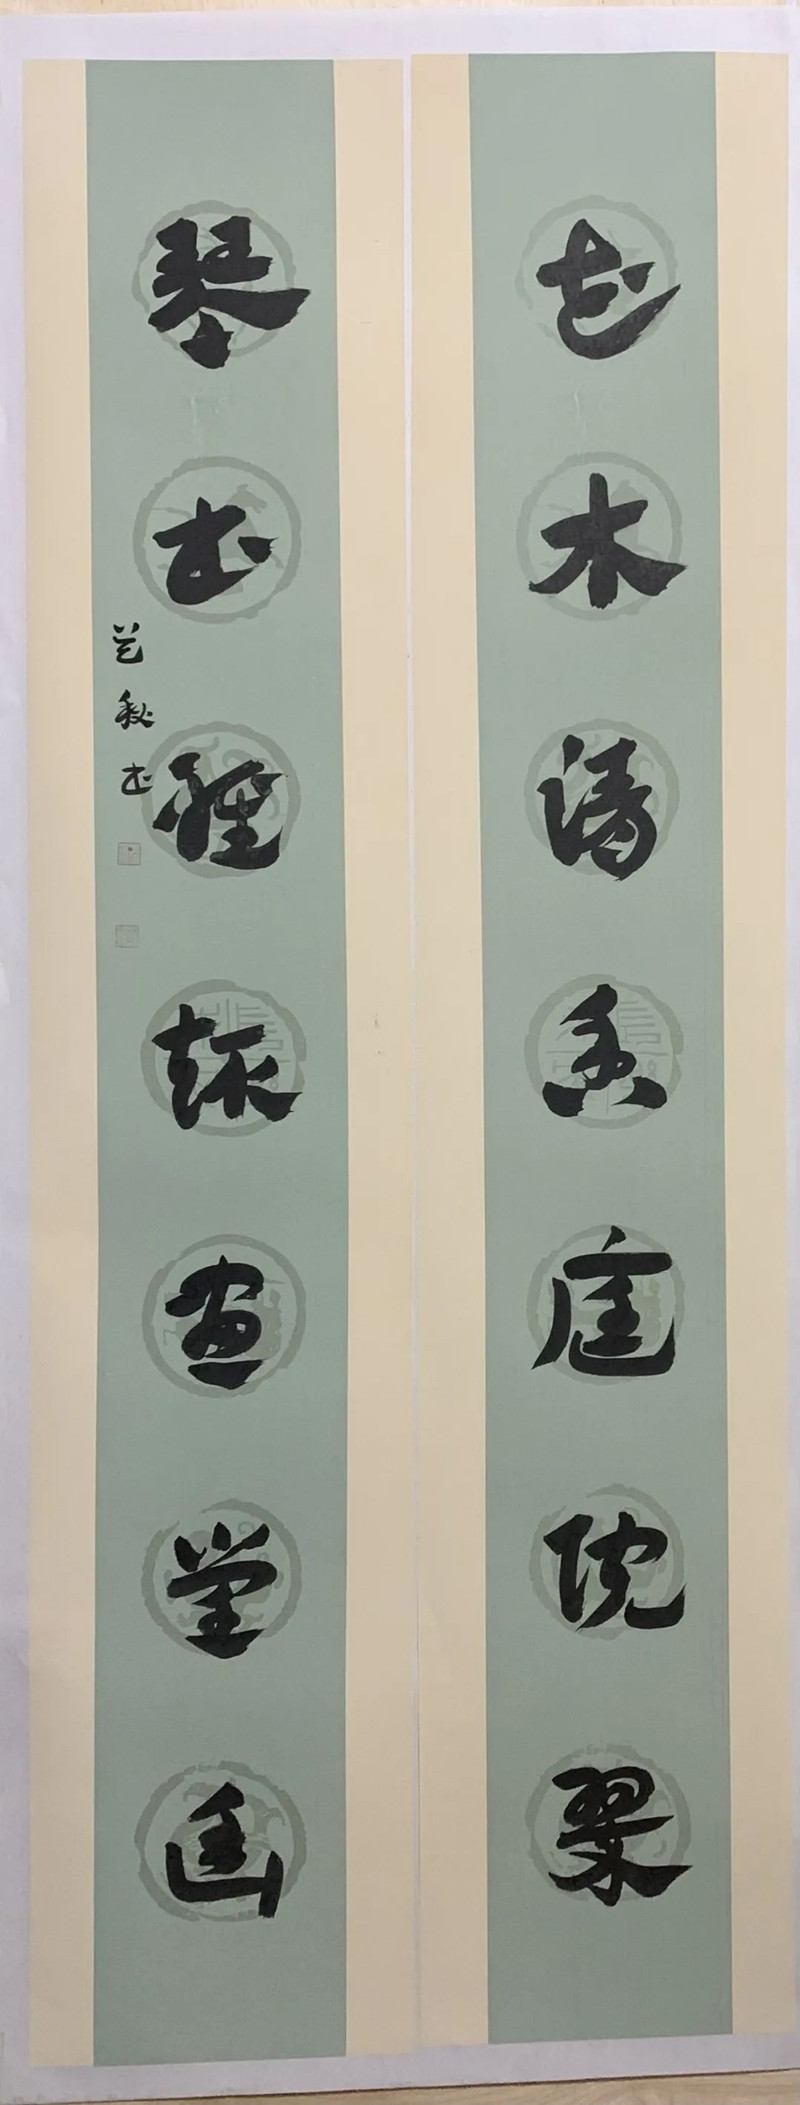 花木清香庭院翠
琴书雅趣画堂幽
兰秋书